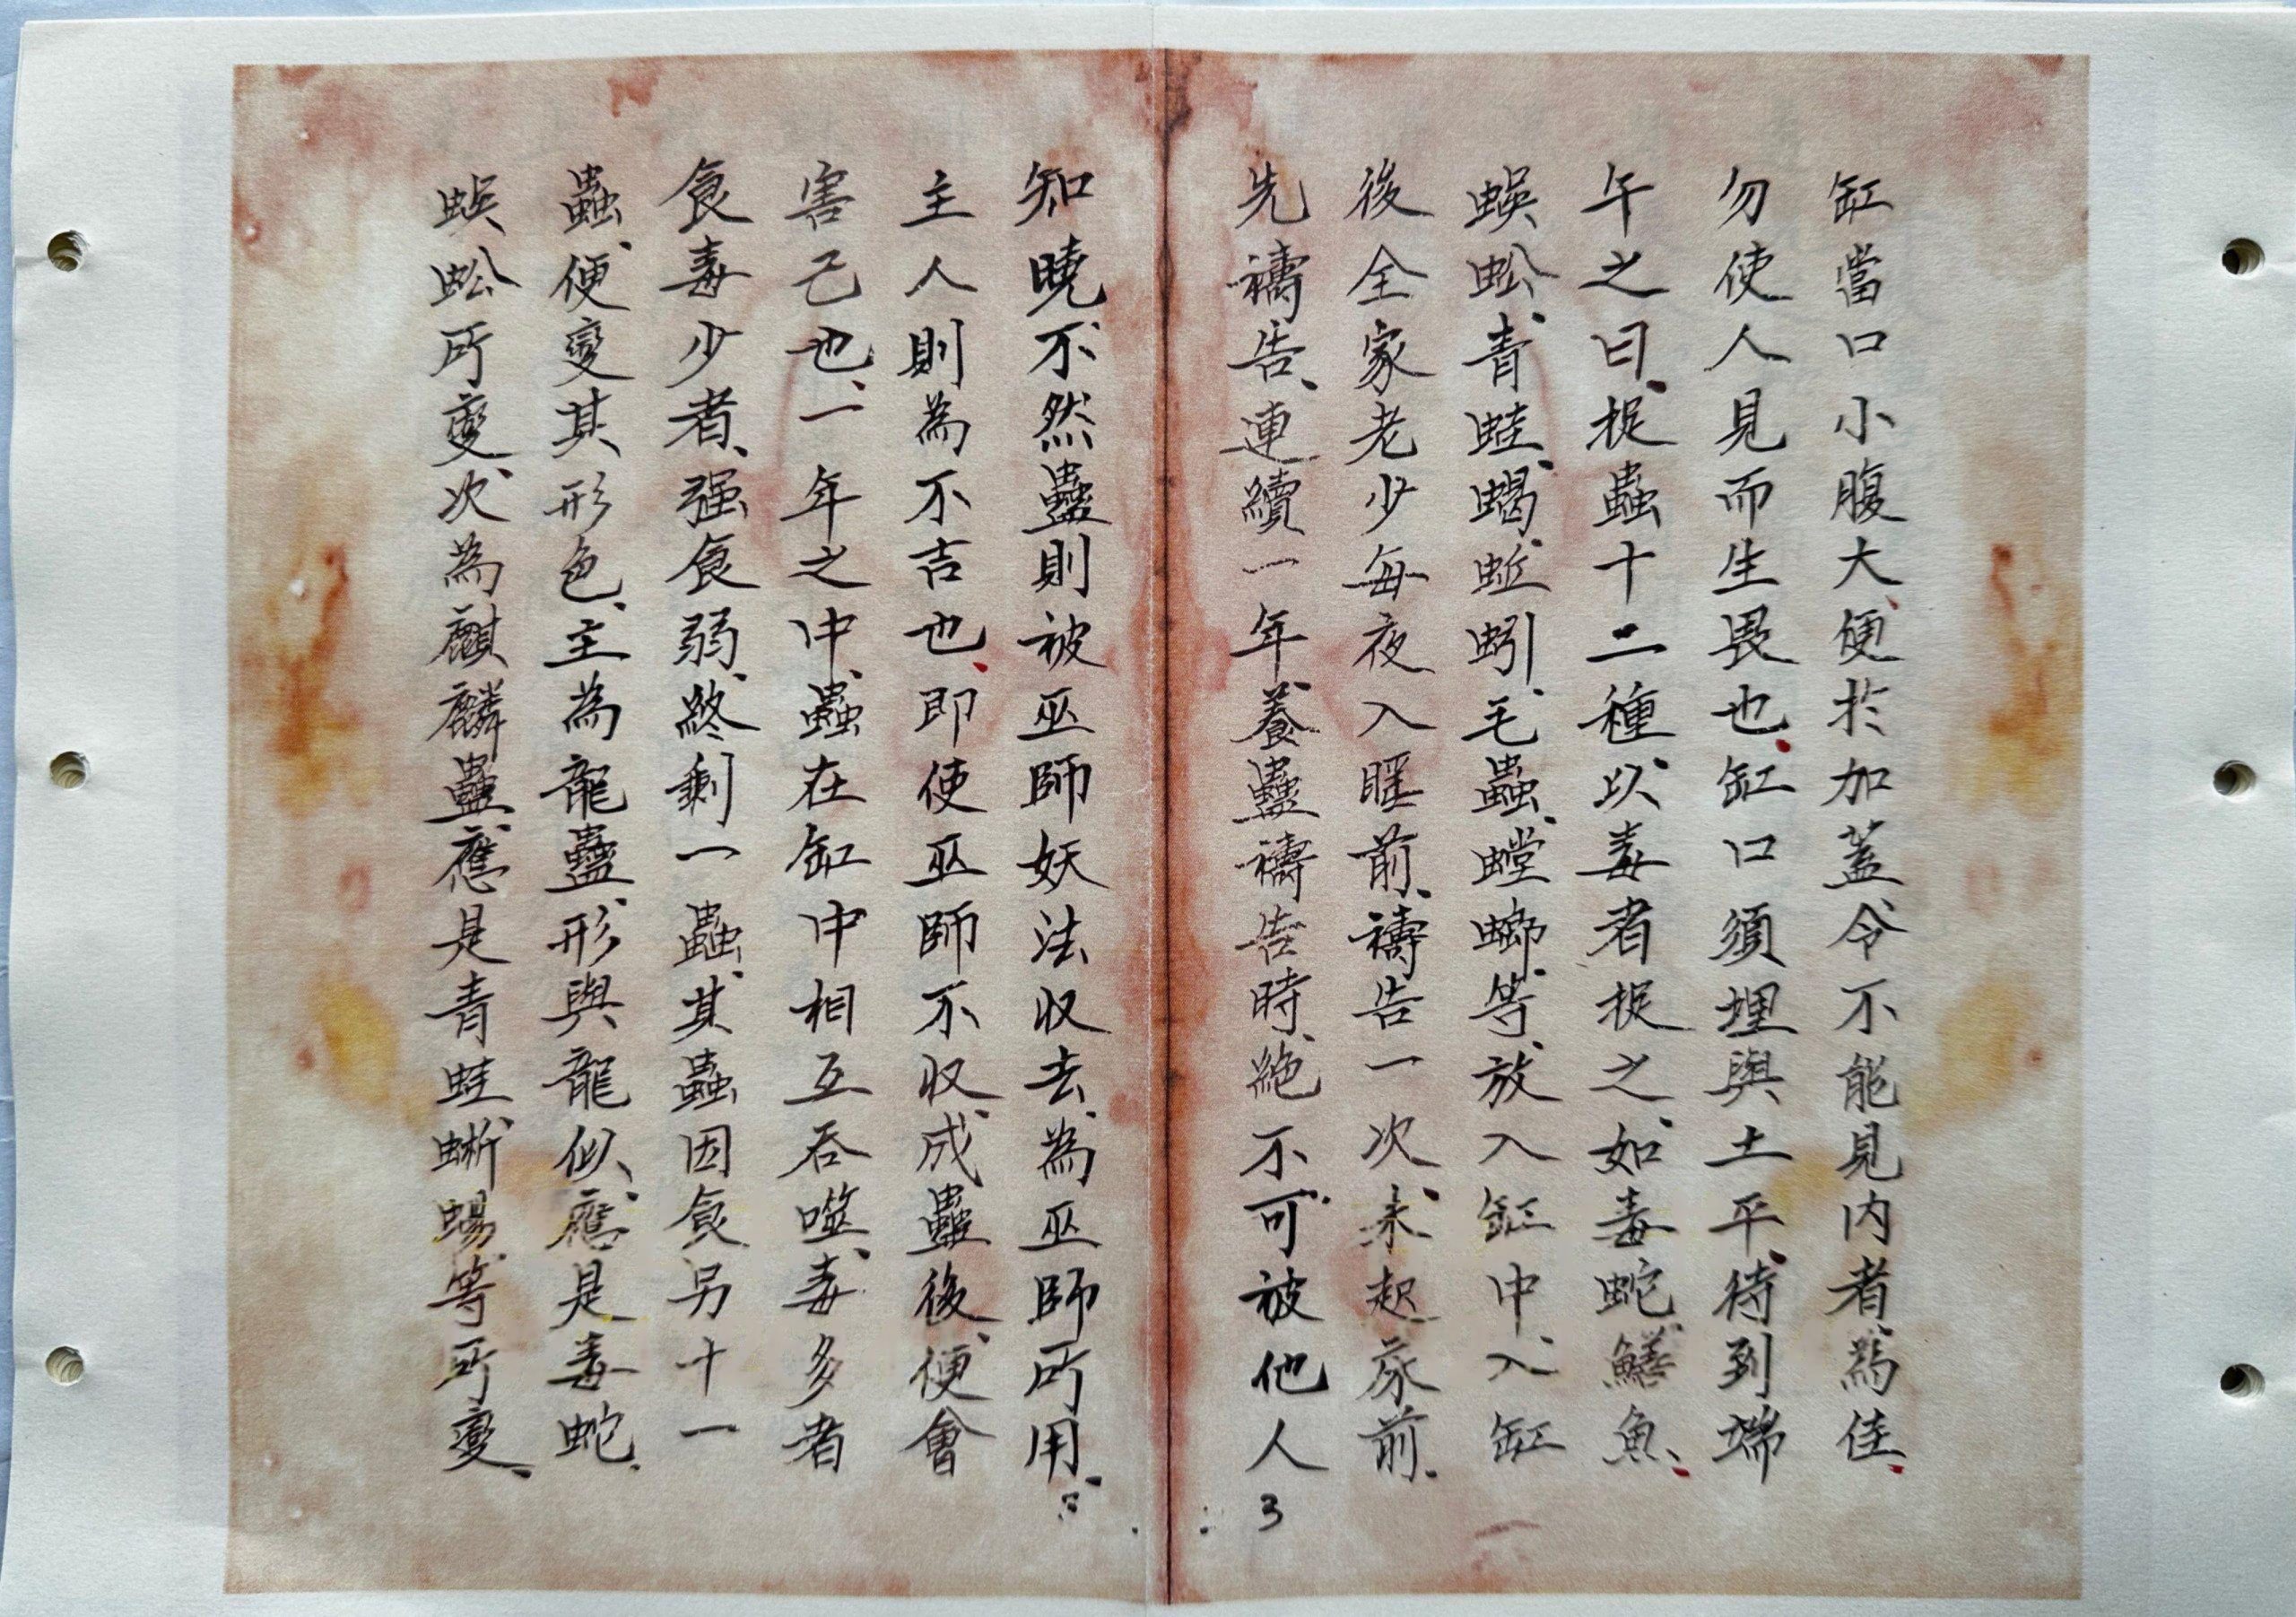 缸當口小腹大、便於加蓋、令不能見內者、為佳、
勿使人見而生畏也、缸口須埋與土平、待到端
午之日、捉蟲十二種、以毒者捉之、如毒蛇、鱔魚、
蜈蚣、青蛙、蝎、蚯蚓、毛蟲、螳螂、等、放入缸中、入缸
後全家老少每夜入睡前、禱告一次、未起床前、
先禱告、連續一年、養蠱禱告時、絶不可被他人
知曉、不然蠱則被巫師妖法收去、為巫師所用、
主人則為不吉也、即使巫師不收、成蠱後、便會
害己也、一年之中、蟲在缸中相互吞噬、毒多者
食毒少者、强食弱、終剩一蟲、其蟲因食另十一
蟲、便變其形色、主為龍蠱、形與龍似、應是毒蛇、
蜈蚣所變、次為麒麟蠱、應是青蛙、蜥蜴、等所變、
3